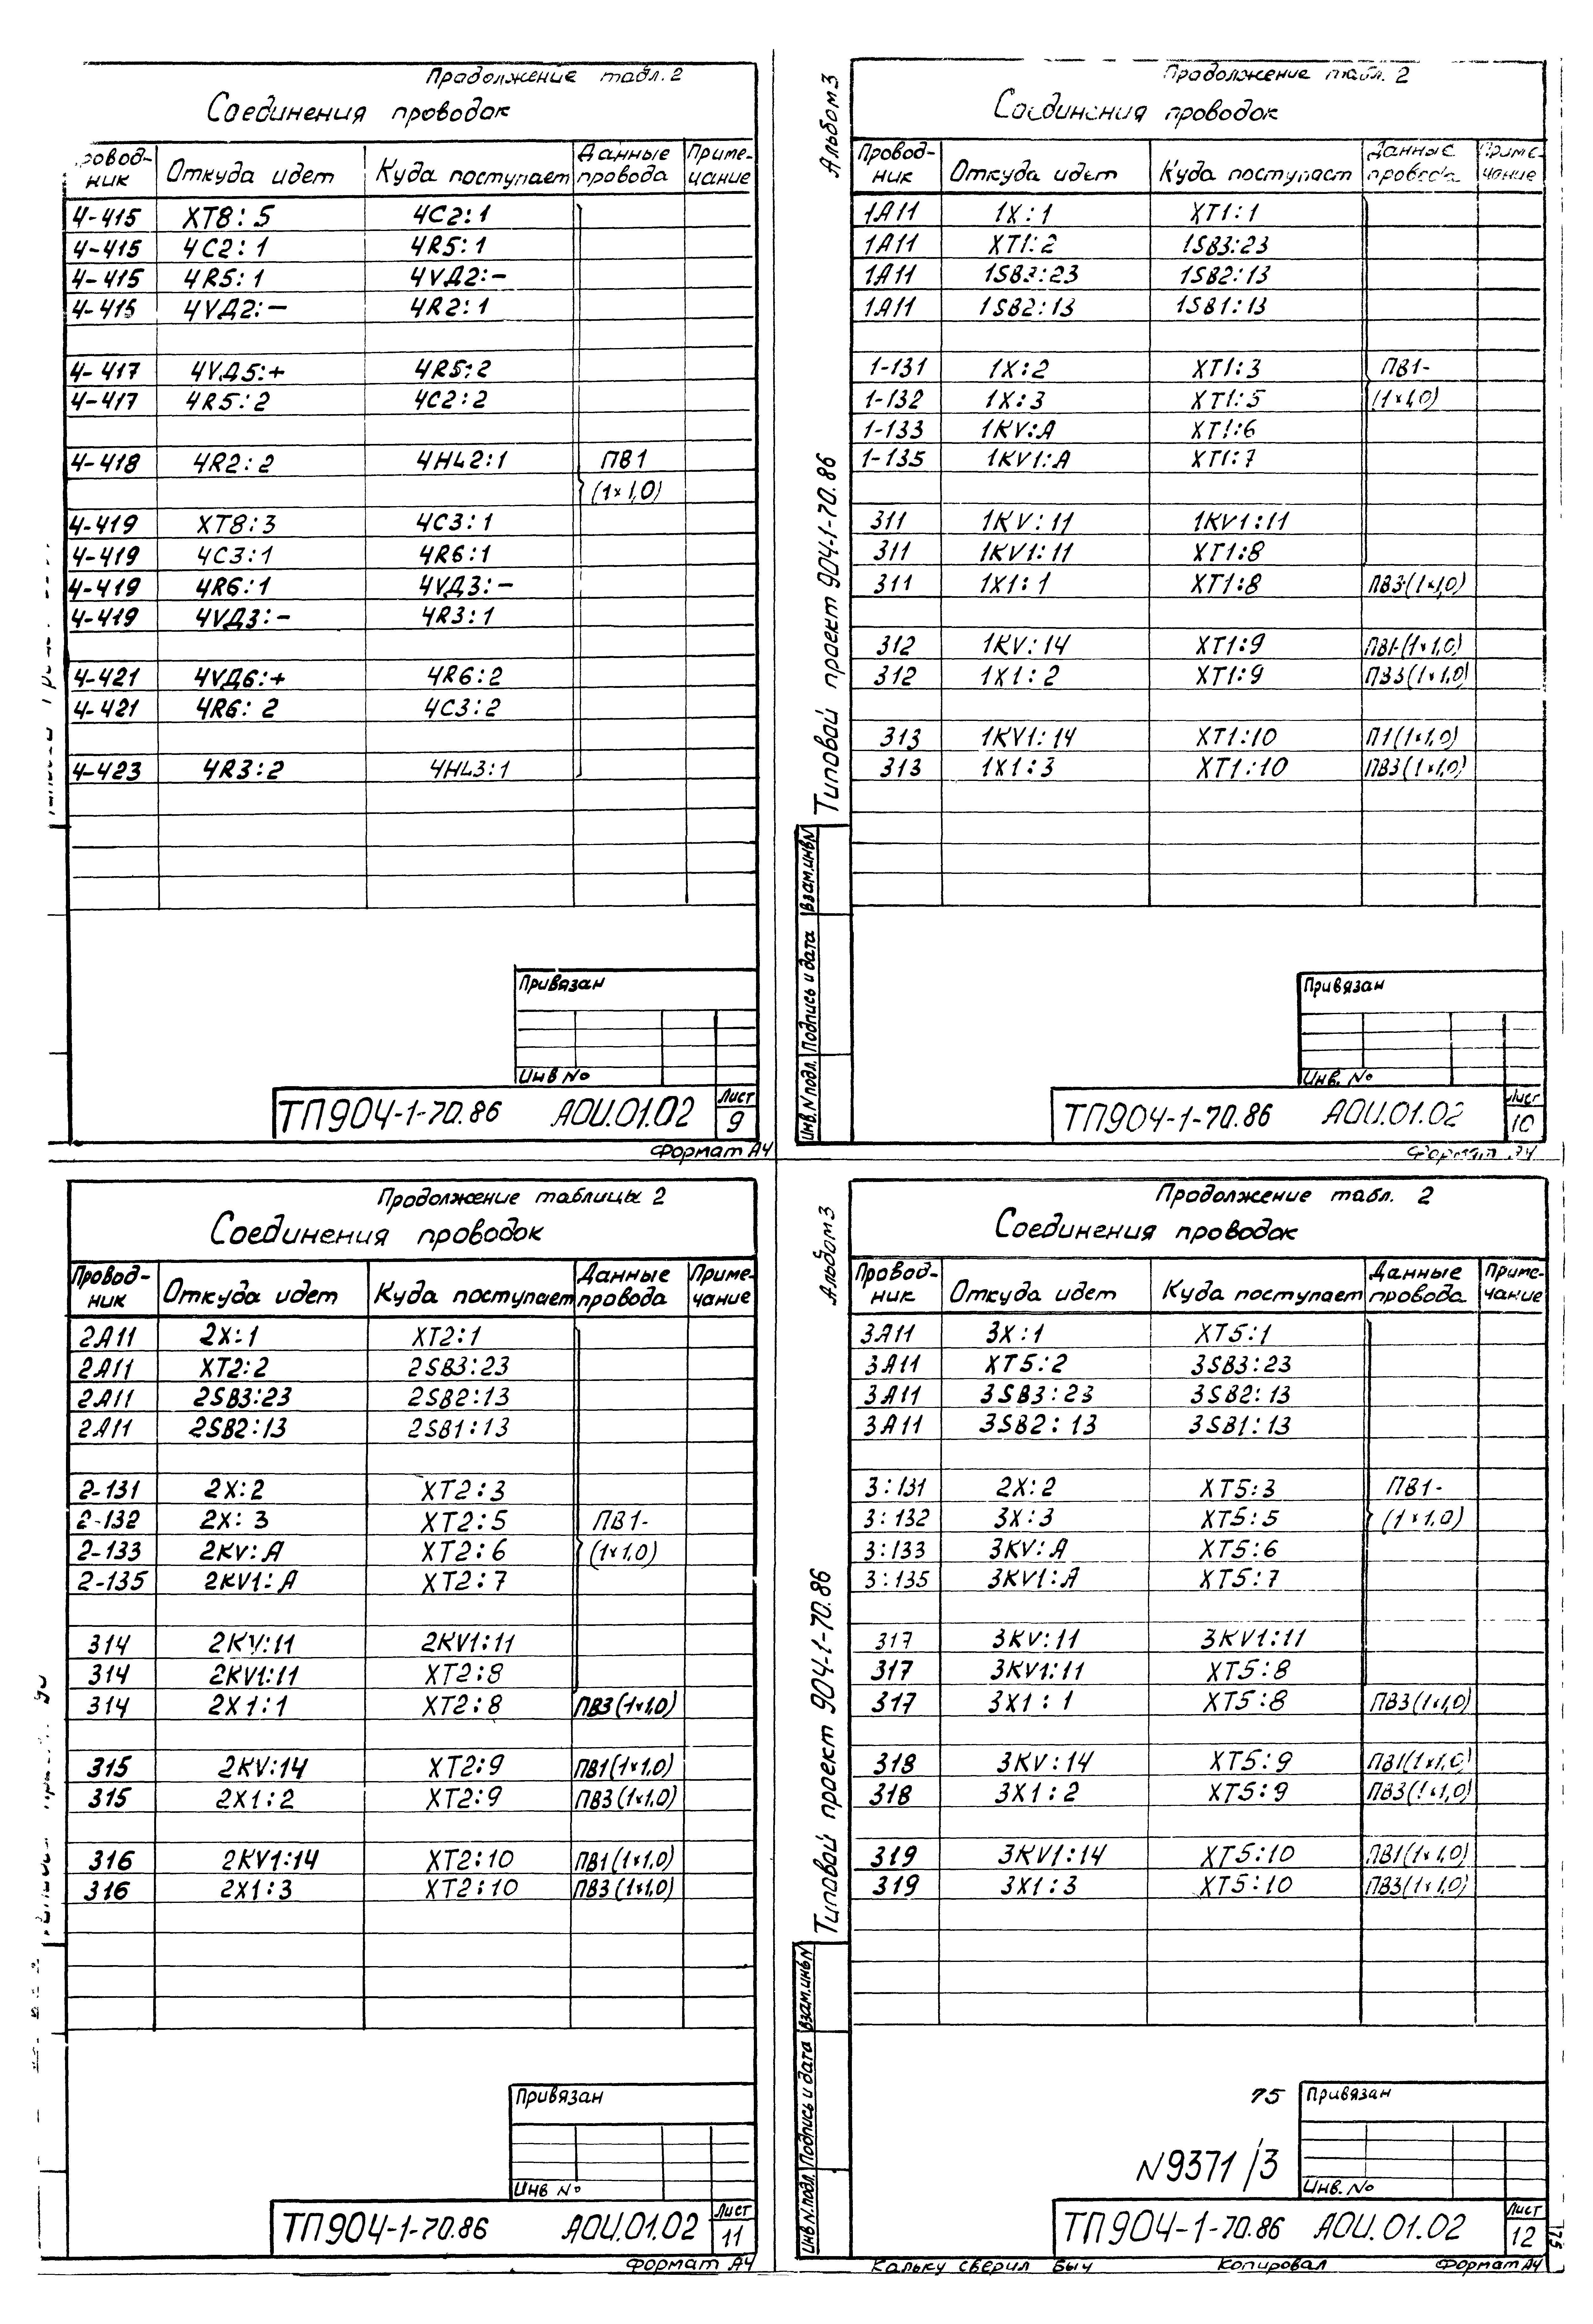 Продолжение табл. 2
Соединения проводок
Провод- Откуда идет Куда поступает Данные Приме-
ник провода чание
4-415 XT8:5 4C2:1
4-415 4C2:1 4R5:1
4-415 4R5:1 4VД2:-
4-415 4VД2:- 4R2:1
4-417 4VД5:+ 4R5:2
4-417 4R5:2 4C2:2
4-418 4R2:2 4HL2:1 ПВ1
(1×1,0)
4-419 XT8:3 4C3:1
4-419 4C3:1 4R6:1
4-419 4R6:1 4VД3:-
4-419 4VД3:- 4R3:1
4-421 4VД6:+ 4R6:2
4-421 4R6:2 4C3:2
4-423 4R3:2 4HL3:1
Привязан
Инв №
ТП904-1-70.86 АОИ.01.02 Лист
9
Формат А4
Альбом 3
Типовой проект 904-1-70.86
Инв.N подл. Подпись и дата Взам.инвN
Продолжение табл. 2
Соединения проводок
Провод- Откуда идет Куда поступает Данные Приме-
ник провода чание
1A11 1X:1 XT1:1
1A11 XT1:2 1SB3:23
1A11 1SB3:23 1SB2:13
1A11 1SB2:13 1SB1:13
1-131 1X:2 XT1:3 ПВ1-
1-132 1X:3 XT1:5 (1×1,0)
1-133 1KV:A XT1:6
1-135 1KV1:A XT1:7
311 1KV:11 1KV1:11
311 1KV1:11 XT1:8
311 1X1:1 XT1:8 ПВ3-(1×1,0)
312 1KV:14 XT1:9 ПВ1-(1×1,0)
312 1X1:2 XT1:9 ПВ3(1×1,0)
313 1KV1:14 XT1:10 П1(1×1,0)
313 1X1:3 XT1:10 ПВ3(1×1,0)
Привязан
Инв. №
ТП904-1-70.86 АОИ.01.02 Лист
10
Формат А4
Продолжение таблицы 2
Соединения проводок
Провод- Откуда идет Куда поступает Данные Приме-
ник провода чание
2A11 2X:1 XT2:1
2A11 XT2:2 2SB3:23
2A11 2SB3:23 2SB2:13
2A11 2SB2:13 2SB1:13
2-131 2X:2 XT2:3
2-132 2X:3 XT2:5 ПВ1-
2-133 2KV:A XT2:6 (1×1,0)
2-135 2KV1:A XT2:7
314 2KV:11 2KV1:11
314 2KV1:11 XT2:8
314 2X1:1 XT2:8 ПВ3(1×1,0)
315 2KV:14 XT2:9 ПВ1(1×1,0)
315 2X1:2 XT2:9 ПВ3(1×1,0)
316 2KV1:14 XT2:10 ПВ1(1×1,0)
316 2X1:3 XT2:10 ПВ3(1×1,0)
Привязан
Инв №
ТП904-1-70.86 АОИ.01.02 Лист
11
Формат А4
Альбом 3
Типовой проект 904-1-70.86
Инв N.подл. Подпись и дата Взам.инвN
Продолжение табл. 2
Соединения проводок
Провод- Откуда идет Куда поступает Данные Приме-
ник провода чание
3A11 3X:1 XT5:1
3A11 XT5:2 3SB3:23
3A11 3SB3:23 3SB2:13
3A11 3SB2:13 3SB1:13
3:131 2X:2 XT5:3 ПВ1-
3:132 3X:3 XT5:5 (1×1,0)
3:133 3KV:A XT5:6
3:135 3KV1:A XT5:7
317 3KV:11 3KV1:11
317 3KV1:11 XT5:8
317 3X1:1 XT5:8 ПВ3(1×1,0)
318 3KV:14 XT5:9 ПВ1(1×1,0)
318 3X1:2 XT5:9 ПВ3(1×1,0)
319 3KV1:14 XT5:10 ПВ1(1×1,0)
319 3X1:3 XT5:10 ПВ3(1×1,0)
75
N9371/3
Привязан
Инв. №
ТП904-1-70.86 АОИ.01.02 Лист
12
Кальку сверил Быч Копировал Формат А4